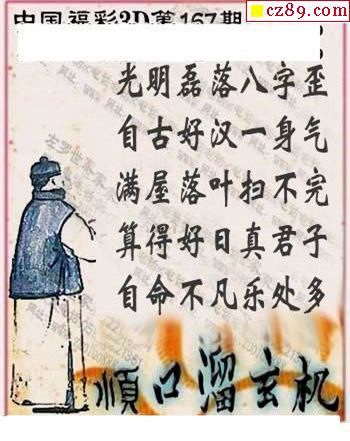 cz89.com
中国福彩3D第167期
光明磊落八字歪
自古好汉一身气
满屋落叶扫不完
算得好日真君子
自命不凡乐处多
順口溜玄机